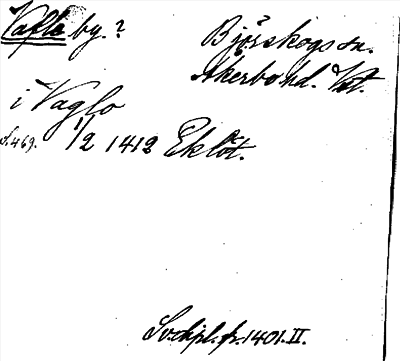 Vafle by.?
Björskogs sn.
Åkerbo hd. Vst.
i Vaglo
S. 469. 1/2 1412 Eklöt.
Sv. dipl. fr. 1401. II.